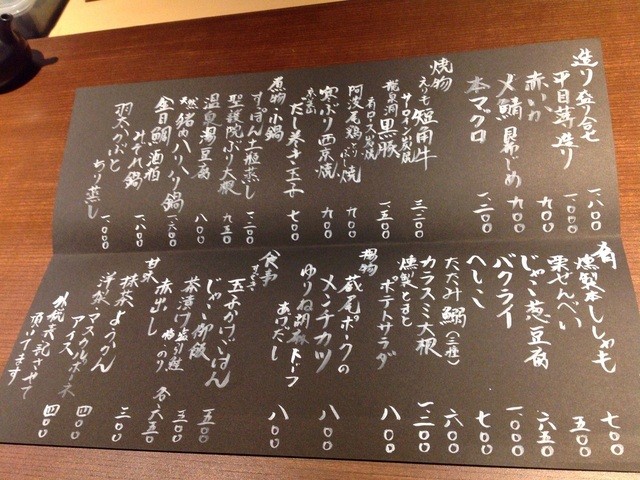 造り盛り合せ 一、八〇〇
平目薄造り 一、〇〇〇
赤いか 九〇〇
〆鯖 昆布じめ 九〇〇
本マグロ 一、二〇〇
焼物
えりも短角牛
サーロイン炭焼 三、二〇〇
龍泉洞黒豚
肩ロース炭焼 一、五〇〇
阿波尾鶏 焼 九〇〇
寒ぶり西京焼 九〇〇
だし巻き玉子 七〇〇
煮物 小鍋
すっぽん土瓶蒸し 一、二〇〇
聖護院ぶり大根 九五〇
温泉湯豆腐 八〇〇
天然猪肉ハリハリ鍋 一、六〇〇
金目鯛酒粕
みぞれ鍋 一、八〇〇
ちり蒸し 一、〇〇〇
肴
燻製本ししゃも 七〇〇
栗せんべい 五〇〇
じゃこ葱豆腐 六五〇
バクライ 一、〇〇〇
へしこ 七〇〇
たたみ鰯(三種) 六〇〇
カラスミ大根 一、二〇〇
燻製とまと
ポテトサラダ 八〇〇
揚物
蔵尾ポークの
メンチカツ 八〇〇
ゆりね胡麻トーフ
あげだし 八〇〇
食事
玉子かけごはん
じゃこ御飯 五〇〇
茶漬け 鮭 梅 のり 各六五〇
赤出し 三〇〇
甘味
抹茶ようかん 三〇〇
洋梨マスカルポーネ
アイス 四〇〇
外税表記させて
頂いてます
四〇〇